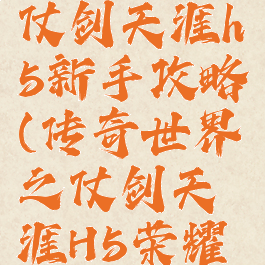 仗剑天涯h
5新手攻略
(传奇世界
之仗剑天
涯H5荣耀